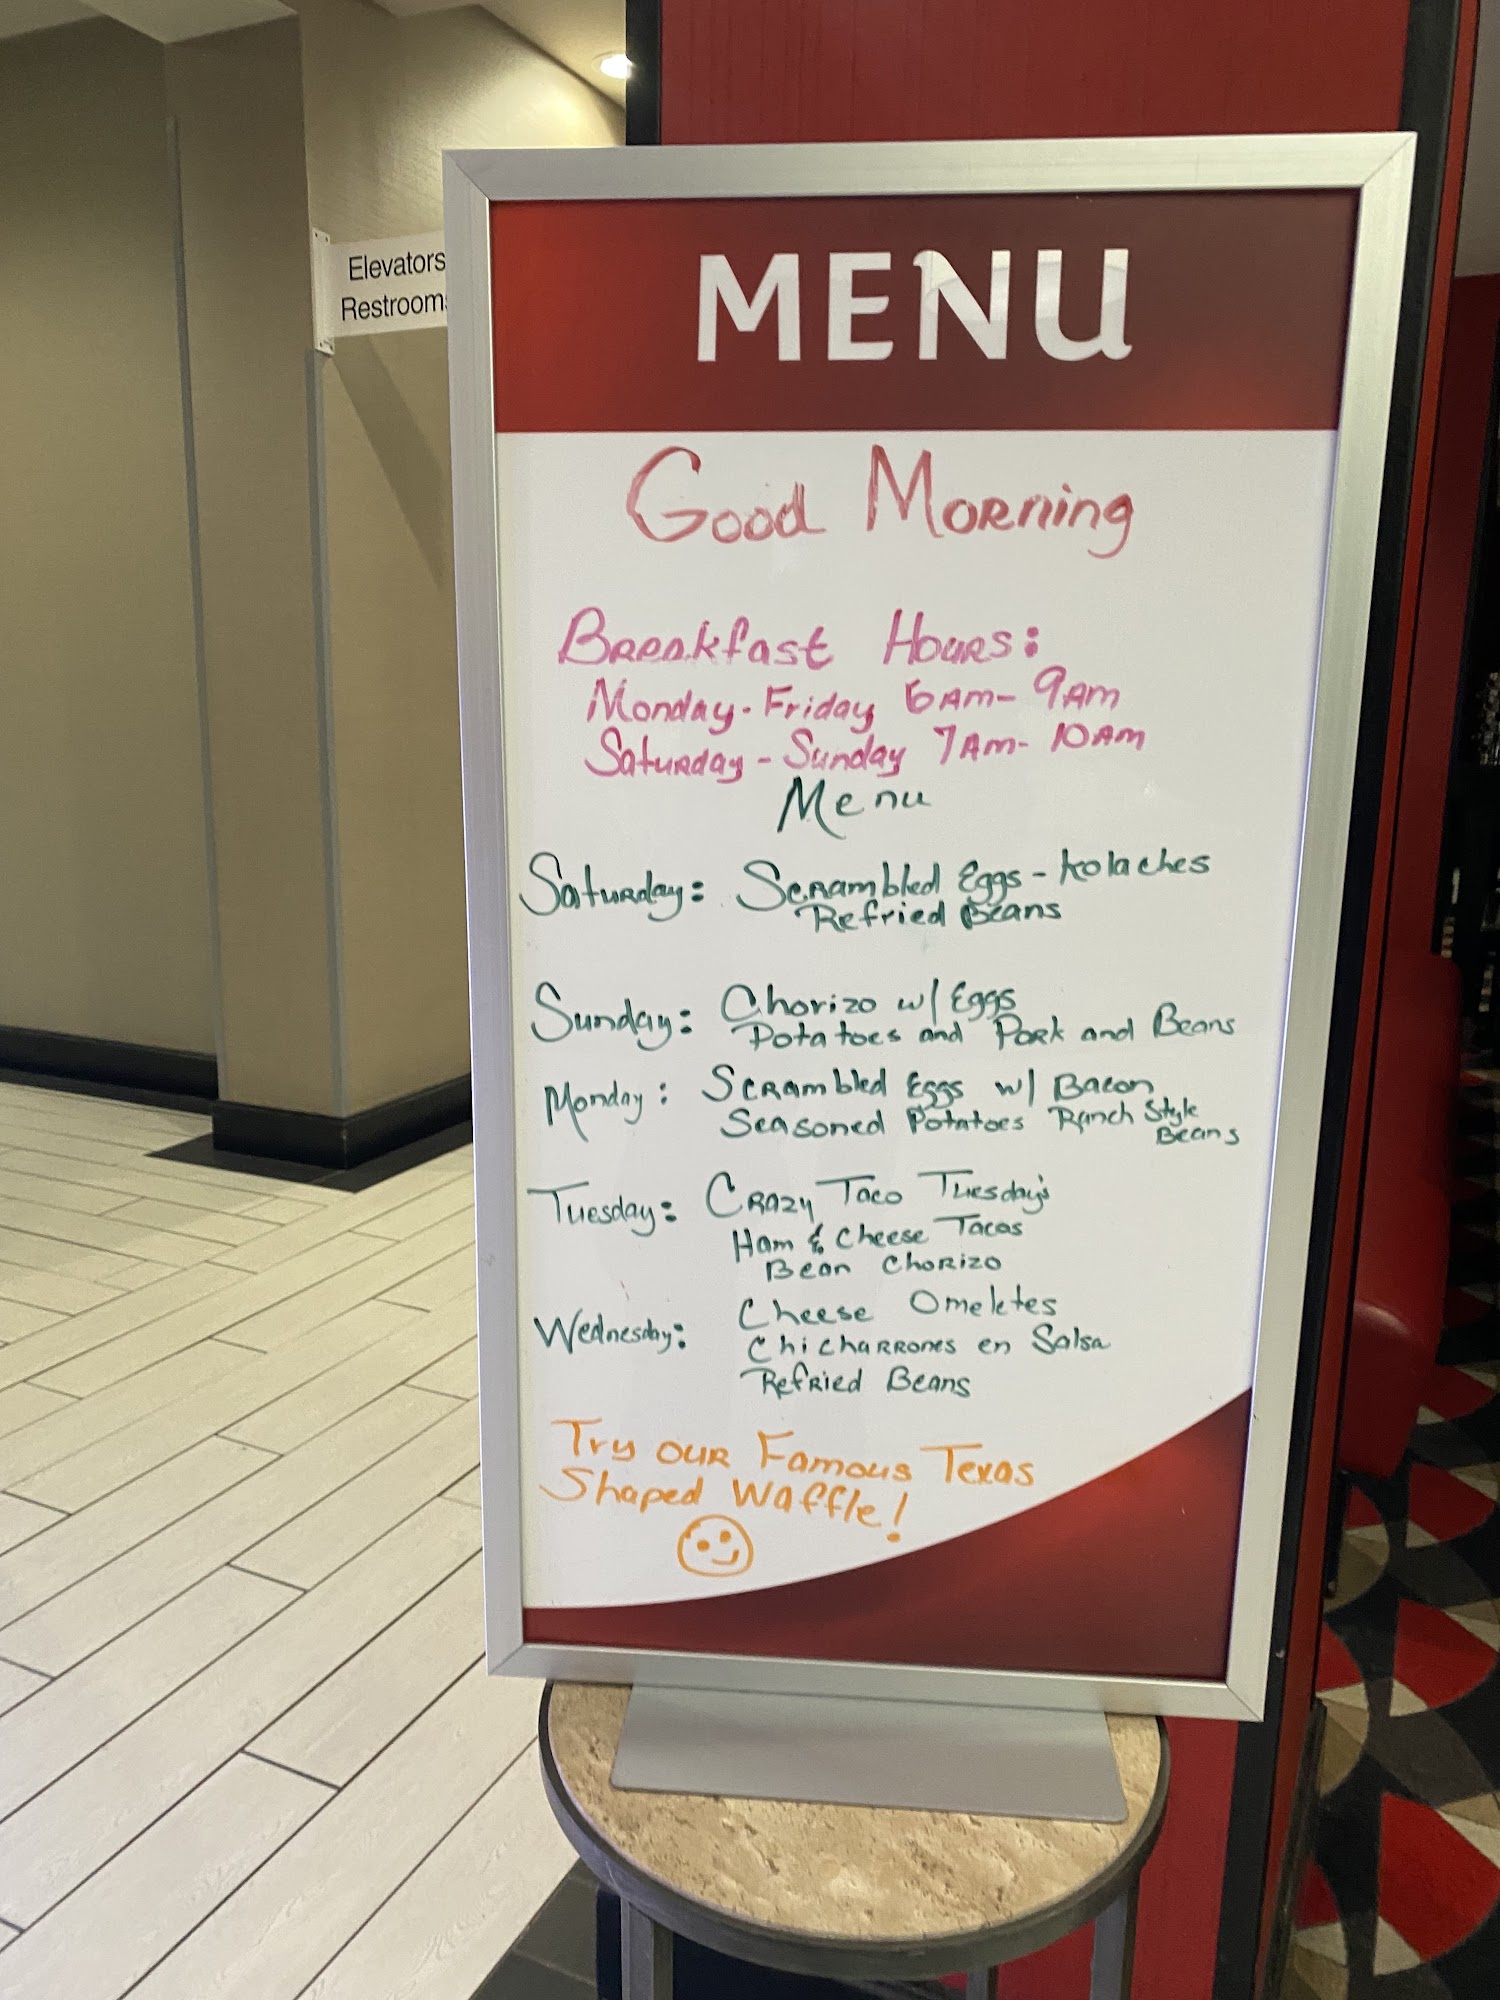 Elevators
Restrooms
MENU
Good Morning
Breakfast Hours:
Monday-Friday 6am-9am
Saturday-Sunday 7am-10am
Menu
Saturday: Scrambled Eggs-kolaches
Refried Beans
Sunday: Chorizo w/ Eggs
Potatoes and Pork and Beans
Monday: Scrambled Eggs w/ Bacon
Seasoned Potatoes Ranch Style
Beans
Tuesday: Crazy Taco Tuesday's
Ham & Cheese Tacos
Bean Chorizo
Wednesday: Cheese Omeletes
Chicharrones en Salsa
Refried Beans
Try our Famous Texas
Shaped Waffle!